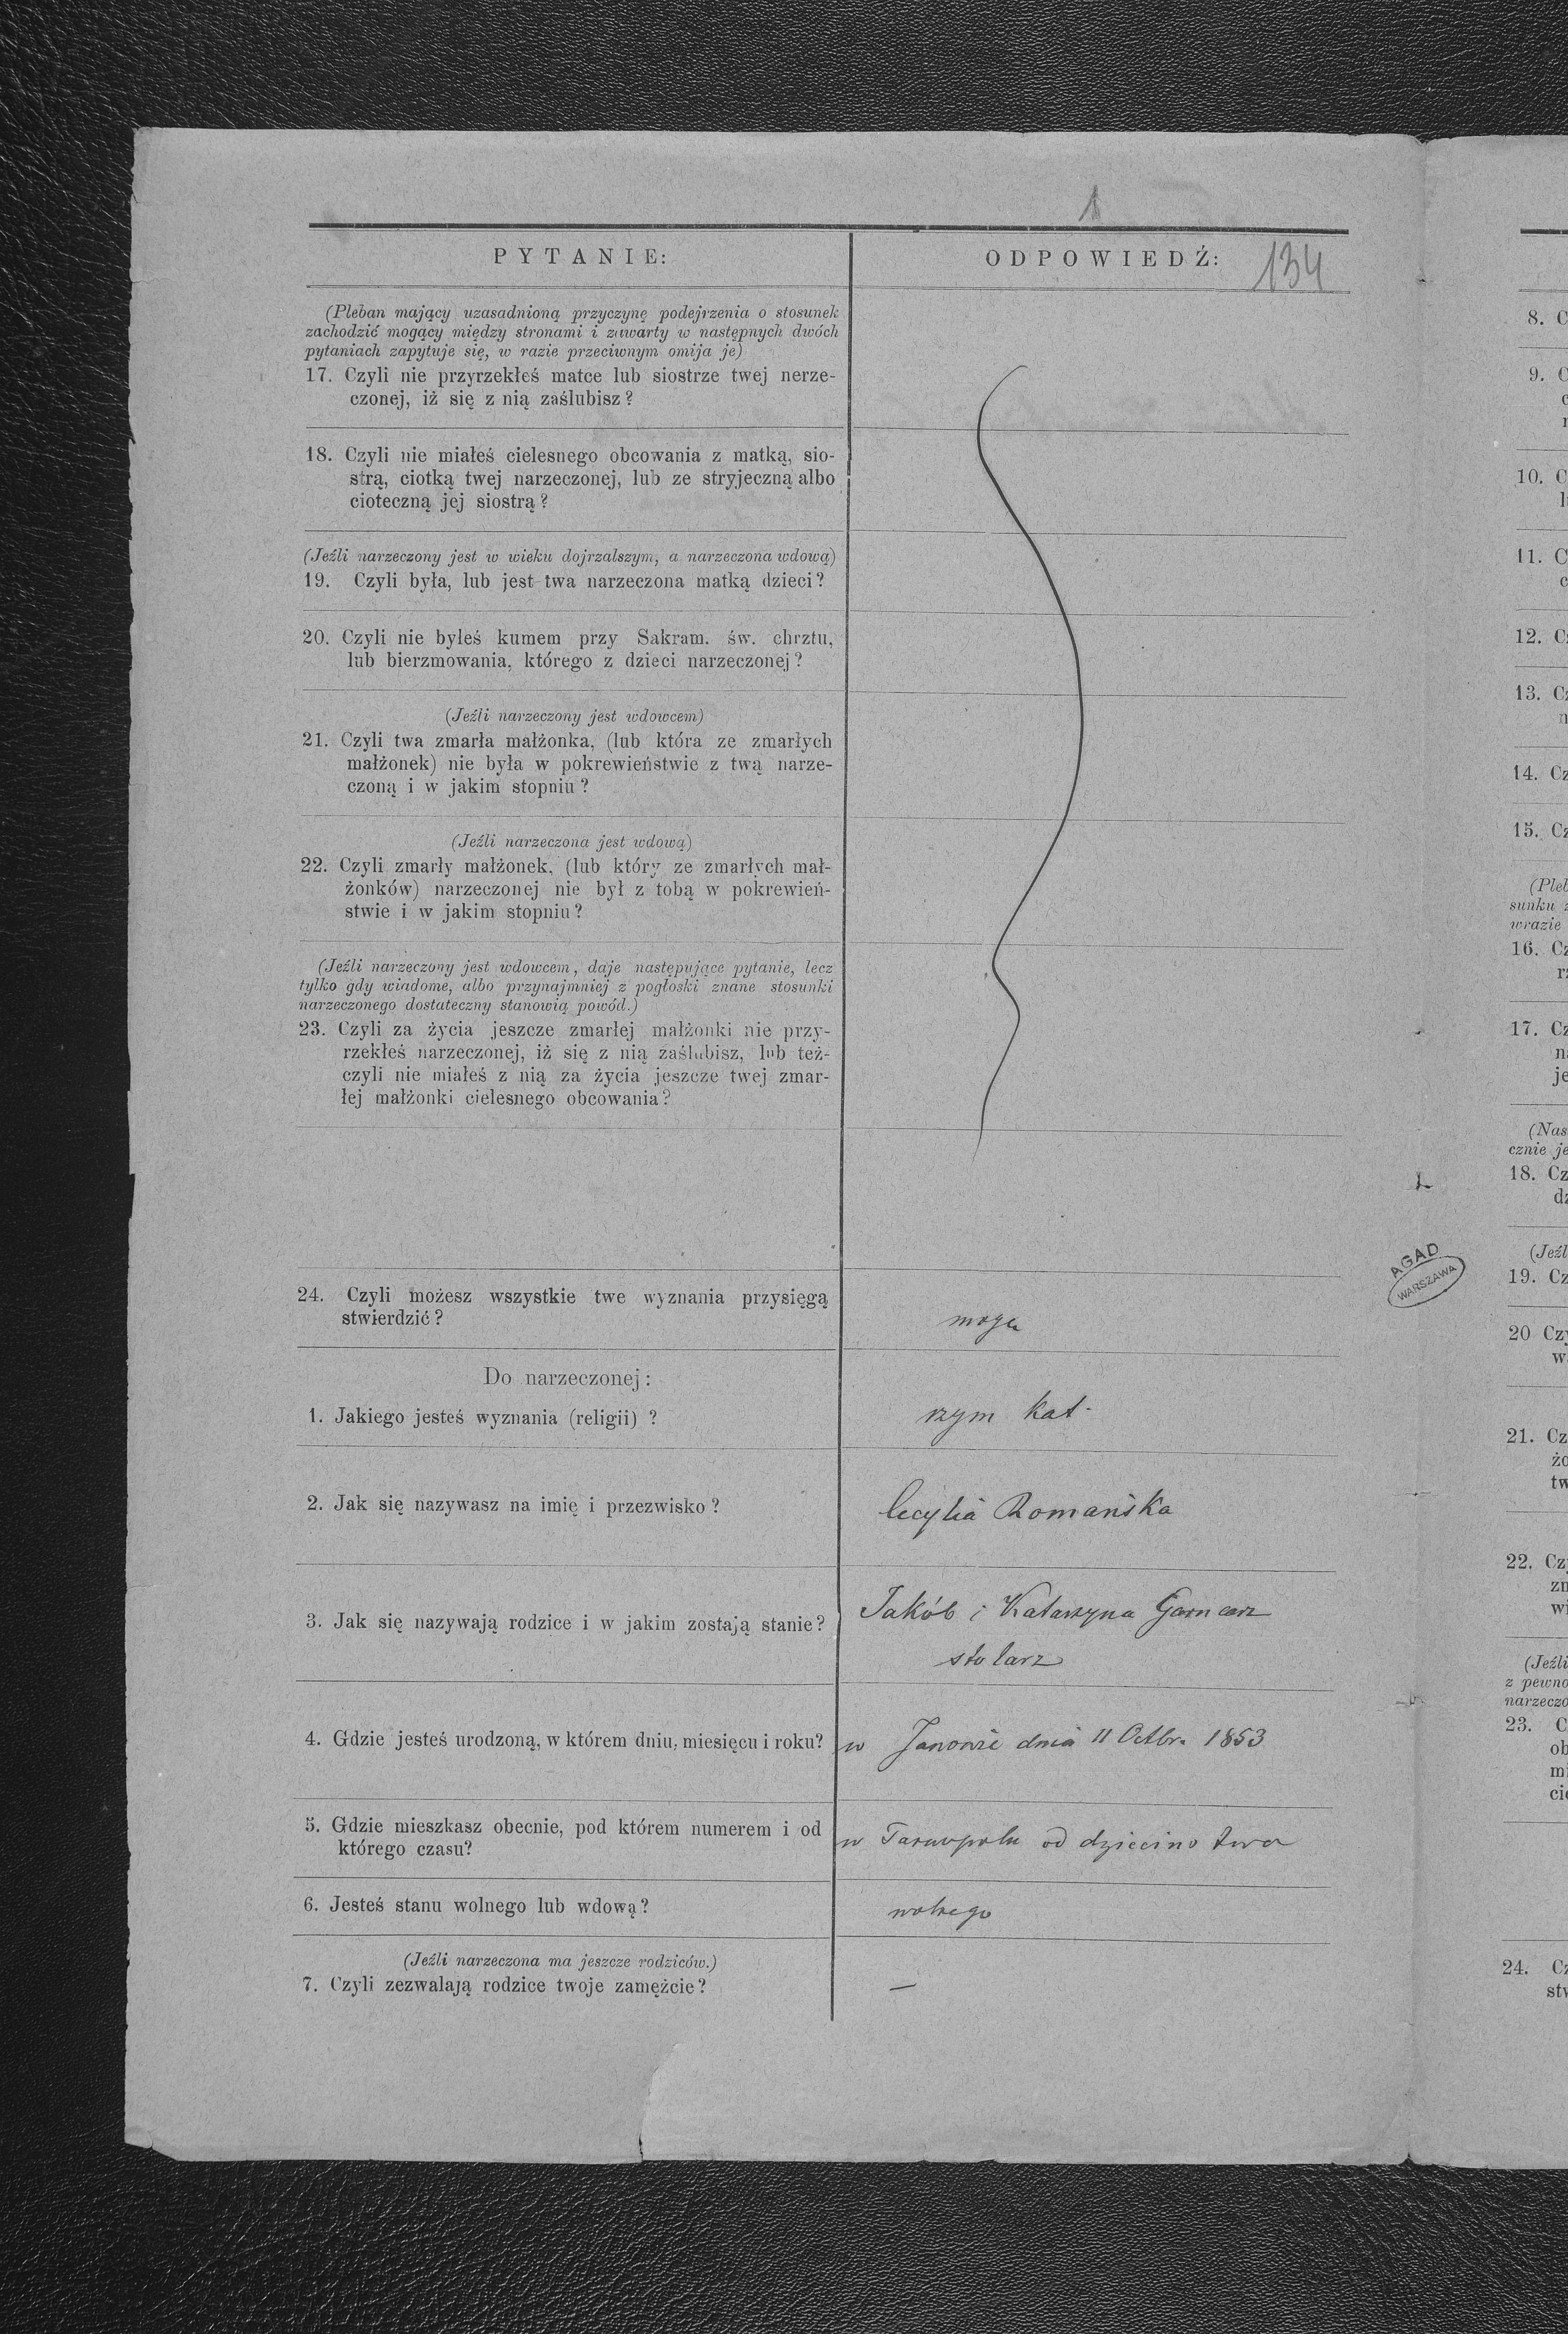 1
PYTANIE:
ODPOWIEDŹ:
134
(Pleban mający uzasadnioną przyczynę podejrzenia o stosunek
zachodzić mogący między stronami i zawarty w następnych dwóch
pytaniach zapytuje się, w razie przeciwnym omija je)
17. Czyli nie przyrzekłeś matce lub siostrze twej nerze-
czonej, iż się z nią zaślubisz?
18. Czyli nie miałeś cielesnego obcowania z matką, sio-
strą, ciotką twej narzeczonej, lub ze stryjeczną albo
cioteczną jej siostrą?
(Jeźli narzeczony jest w wieku dojrzalszym, a narzeczona wdową)
19. Czyli była, lub jest twa narzeczona matką dzieci?
20. Czyli nie byłeś kumem przy Sakram. św. chrztu,
lub bierzmowania, którego z dzieci narzeczonej?
(Jeźli narzeczony jest wdowcem)
21. Czyli twa zmarła małżonka, (lub która ze zmarłych
małżonek) nie była w pokrewieństwie z twą narze-
czoną i w jakim stopniu?
(Jeźli narzeczona jest wdową)
22. Czyli zmarły małżonek, (lub który ze zmarłych mał-
żonków) narzeczonej nie był z tobą w pokrewień-
stwie i w jakim stopniu?
(Jeźli narzeczony jest wdowcem, daje następujące pytanie, lecz
tylko gdy wiadome, albo przynajmniej z pogłoski znane stosunki
narzeczonego dostateczny stanowią powód.)
23. Czyli za życia jeszcze zmarłej małżonki nie przy-
rzekłeś narzeczonej, iż się z nią zaślubisz, lub też-
czyli nie miałeś z nią za życia jeszcze twej zmar-
łej małżonki cielesnego obcowania?
24. Czyli możesz wszystkie twe wyznania przysięgą
stwierdzić?
mogę
Do narzeczonej:
1. Jakiego jesteś wyznania (religii) ?
rzym kat.
2. Jak się nazywasz na imię i przezwisko?
Cecylia Romańska
3. Jak się nazywają rodzice i w jakim zostają stanie?
Jakób i Katarzyna Garncarz
stolarz
4. Gdzie jesteś urodzoną, w którem dniu, miesięcu i roku?
w Janowie dnia 11 Octbr. 1853
5. Gdzie mieszkasz obecnie, pod którem numerem i od
którego czasu?
w Tarnopolu od dziecinstwa
6. Jesteś stanu wolnego lub wdową?
wolnego
(Jeźli narzeczona ma jeszcze rodziców.)
7. Czyli zezwalają rodzice twoje zamężcie?
—
AGAD
WARSZAWA
8. C
9. C
c
10. C
11. C
c
12. C
13. Cz
14. Cz
15. Cz
(Pleb
sunku z
wrazie
16. Cz
rz
17. Cz
na
je
(Nas
cznie je
18. Cz
dz
(Jeźl
19. Cz
20 Czy
w
21. Cz
żo
tw
22. Cz
zn
wi
(Jeźli
z pewno
narzeczo
23. C
ob
mi
cie
24. Cz
stw